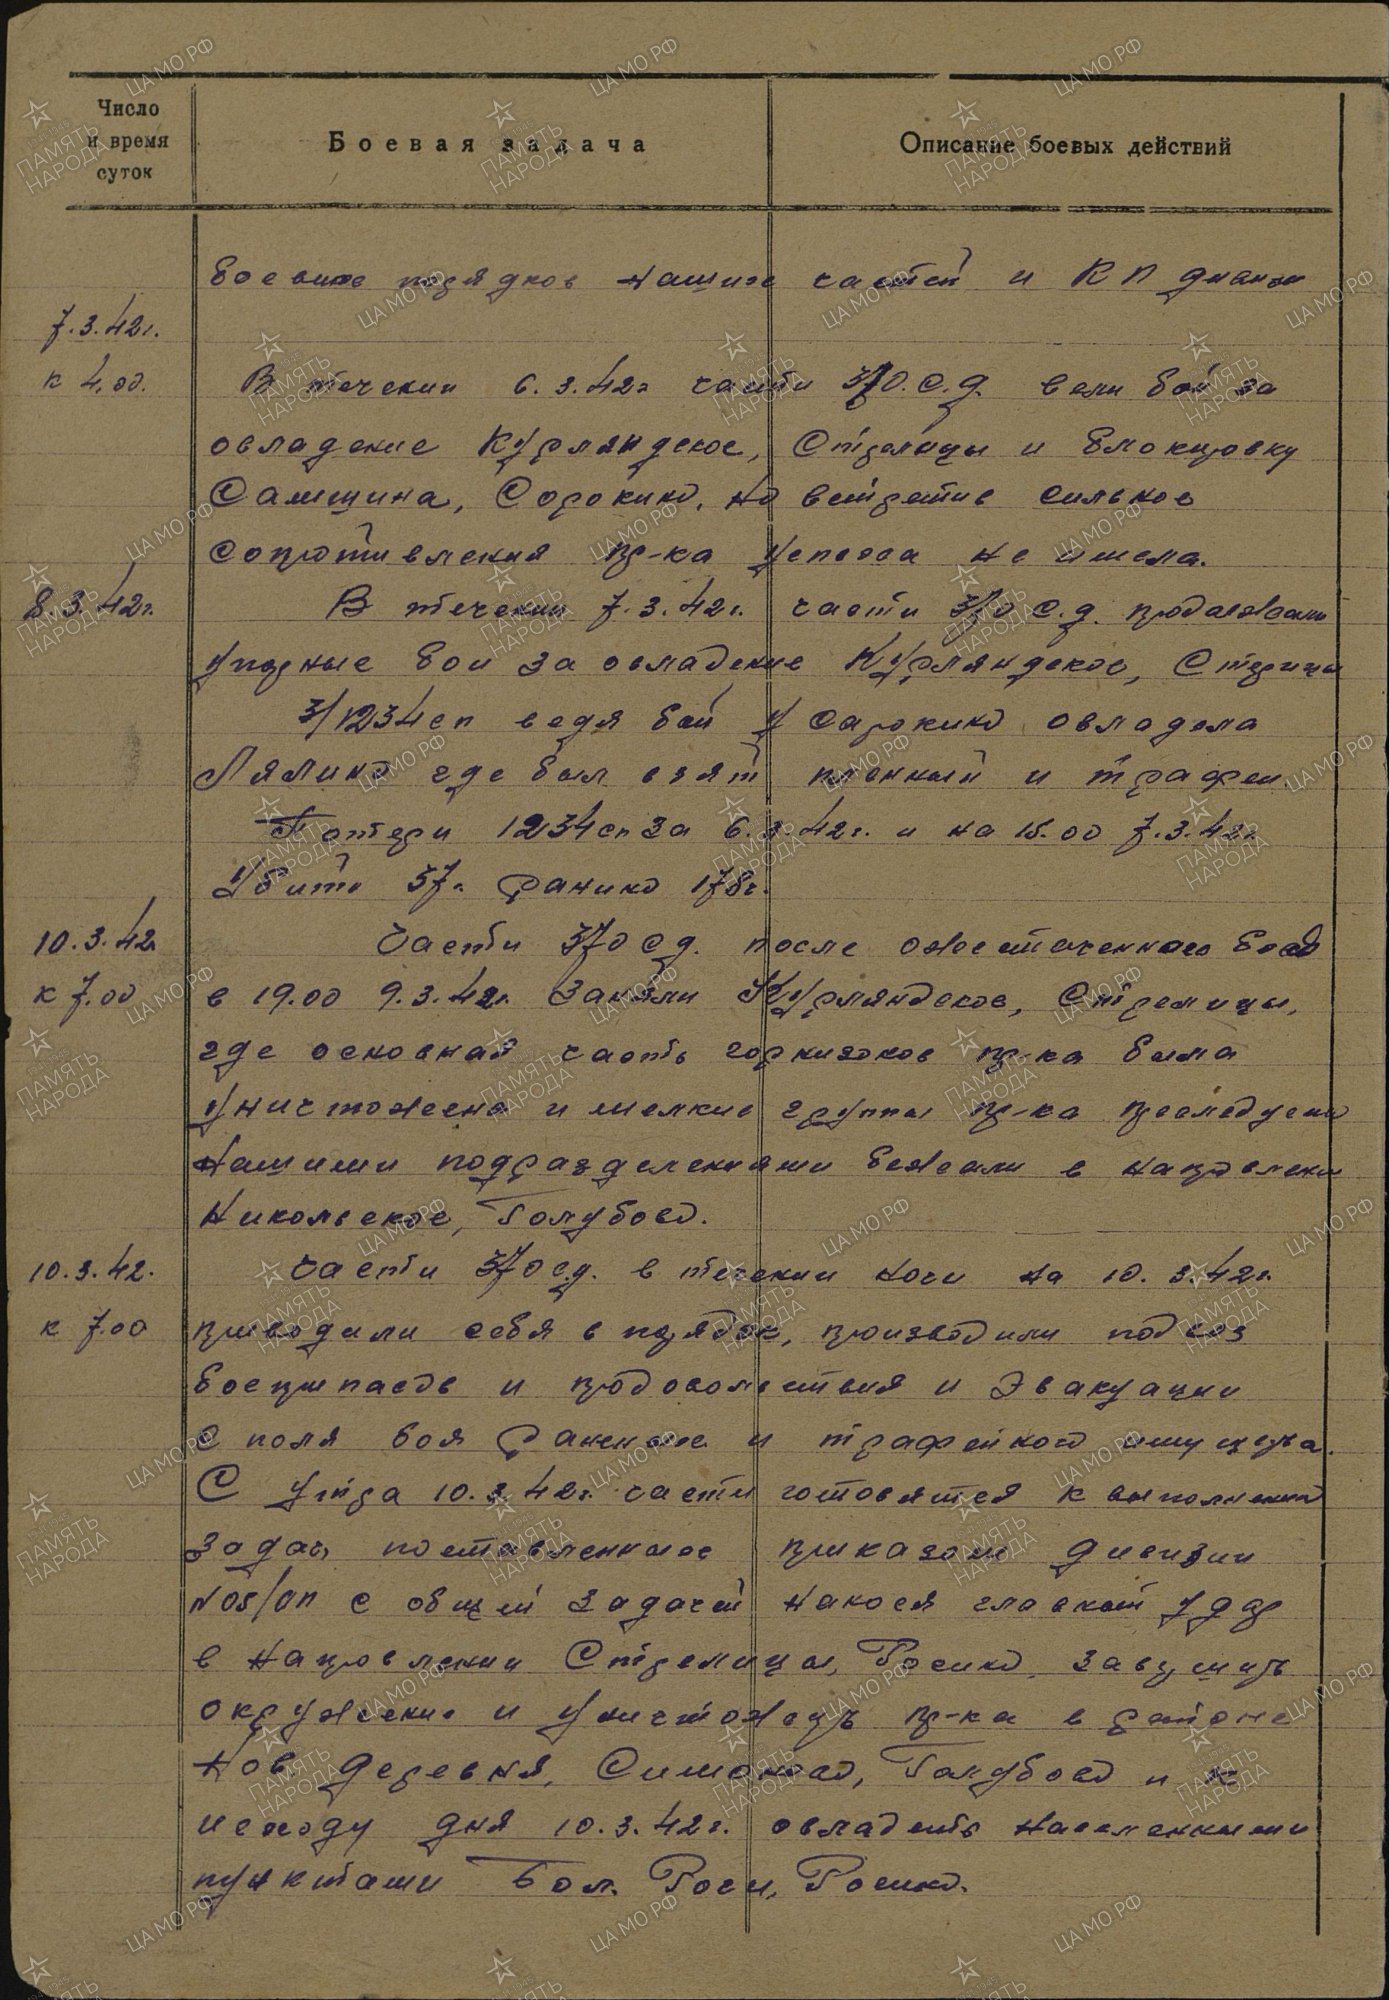 Число и время суток
Боевая задача
Описание боевых действий
боевых порядков наших частей и КП дивизии
7.3.42г.
к 4.00.
В течении 6.3.42г части 370.С.Д. вели бой за
овладение Курляндское, Стрелицы и блокировку
Самшина, Сорокино, но встретив сильное
сопротивления пр-ка успеха не имела.
8.3.42г.
В течении 7.3.42г. части 370 С.Д. продолжали
упорные бои за овладение Курляндское, Стрелицы
3/1234сп ведя бой у Сарокино овладела
Лялино где был взят пленный и трафеи.
Потери 1234сп за 6.3.42г. и на 15.00 7.3.42г.
Убито 57ч. Ранино 178ч.
10.3.42г
к 7.00
Части 370 СД. после ожесточенного боя
в 19.00 9.3.42г. Заняли Курляндское, Стрелицы,
где основная часть горнизонов пр-ка была
уничтожена и мелкие группы пр-ка преследуемы
нашими подразделениями бежали в направлении
Никольское, Голубово.
10.3.42.
к 7.00
Части 370 с.д. в течении ночи на 10.3.42г.
приводили себя в порядок, производили подвоз
боеприпасов и продовольствия и эвакуации
с поля боя раненных и трафейного имущества.
С утра 10.3.42г. части готовятся к выполнению
задач поставленных приказом дивизии
N05/оп с общей задачей нанося главный удар
в направлении Стрелицы, Росино, завершить
окружение и уничтожить пр-ка в районе
Нов Деревня, Симоново, Голубово и к
исходу дня 10.3.42г. овладеть населенными
пунктами Бол. Роси, Росино.
ЦА МО РФ
ПАМЯТЬ НАРОДА